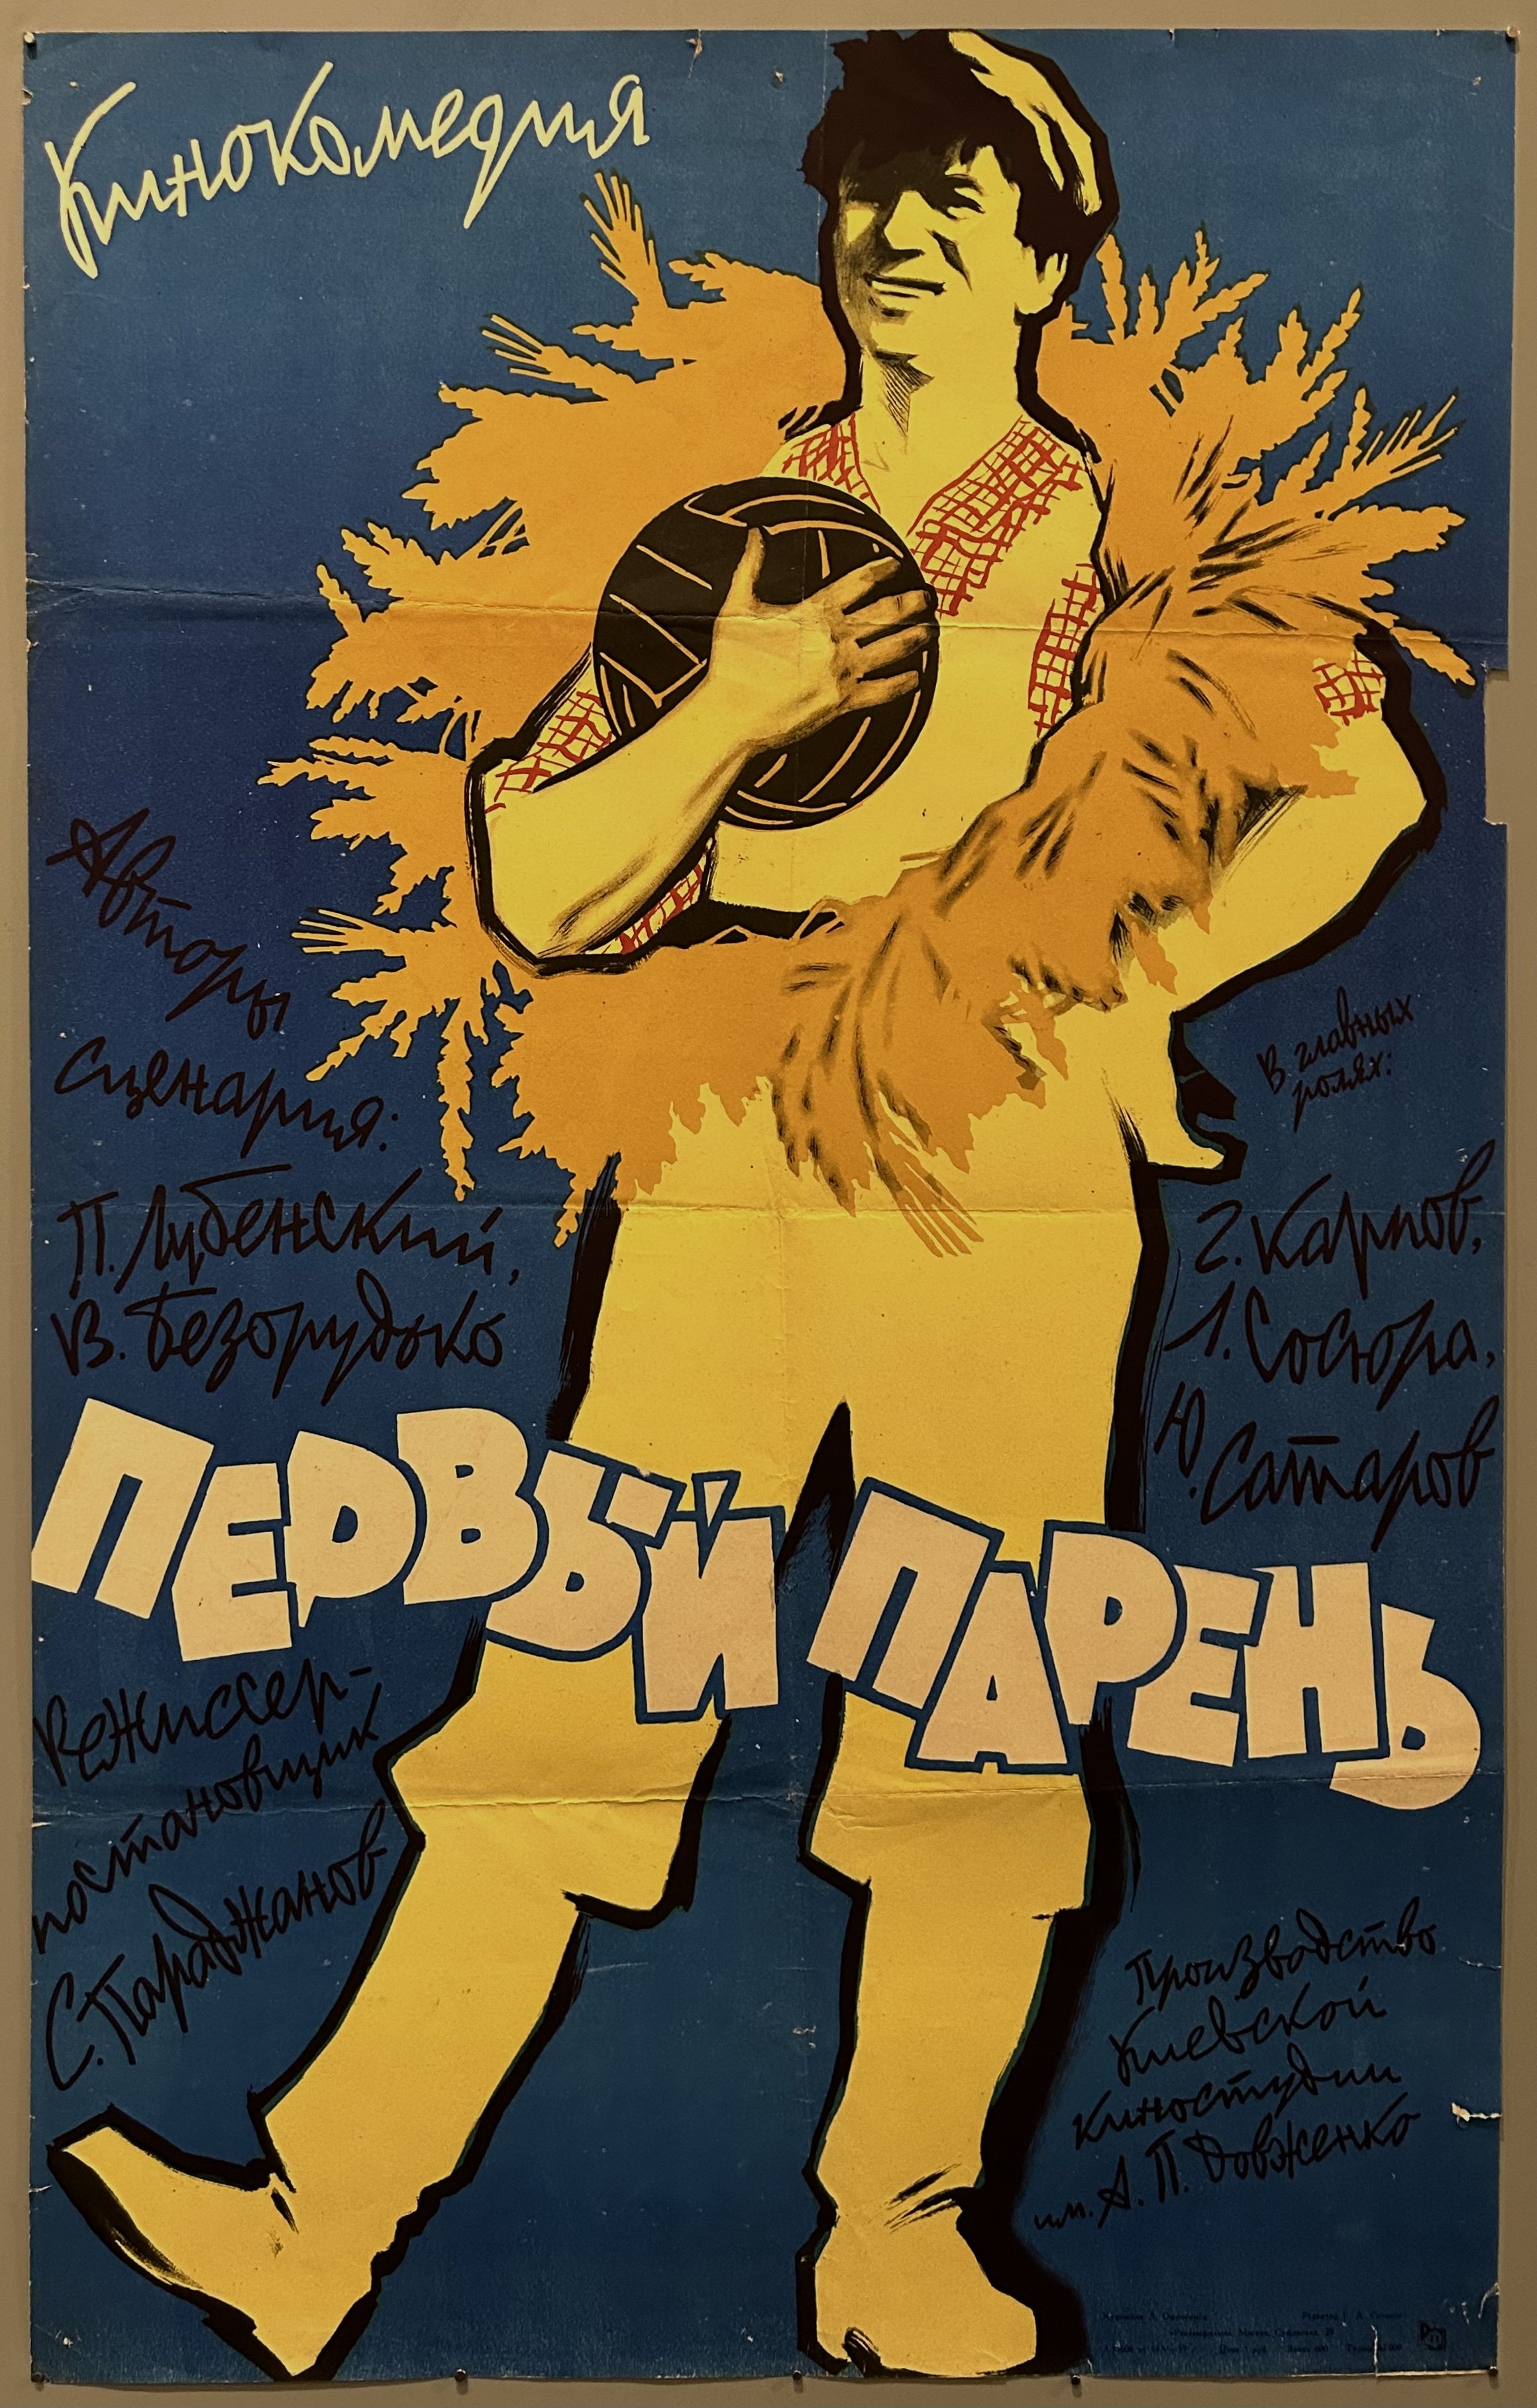 Кинокомедия
Авторы
сценария:
П. Лубенский,
В. Безорудько
В главных
ролях:
Г. Карпов,
Л. Сосюра,
Ю. Сатаров
ПЕРВЫЙ ПАРЕНЬ
Режиссер-
постановщик
С. Параджанов
Производство
Киевской
киностудии
им. А. П. Довженко